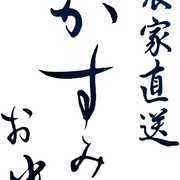 農家直送
かすみ
お